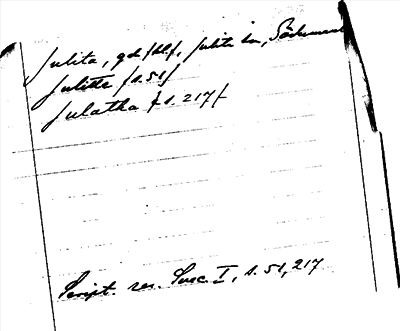 Julita, gd/klf, Julita sn, Södermanl
Julitte /s. 51/
Julatha /s. 217/
Script. rer. Suec. I, s. 51, 217